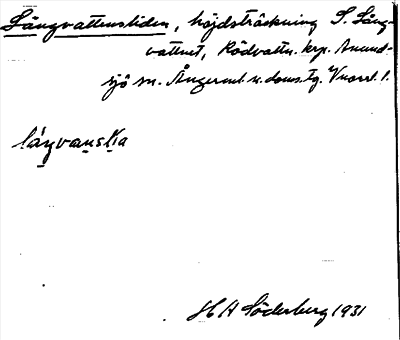 Långvattensliden, höjdsträckning S. Lång-
vattnet, Rödvattn. krp. Anund-
sjö sn. Ångerml. n. doms. tg. Vnorrl. l.
långvansḷia
H A Söderberg 1931